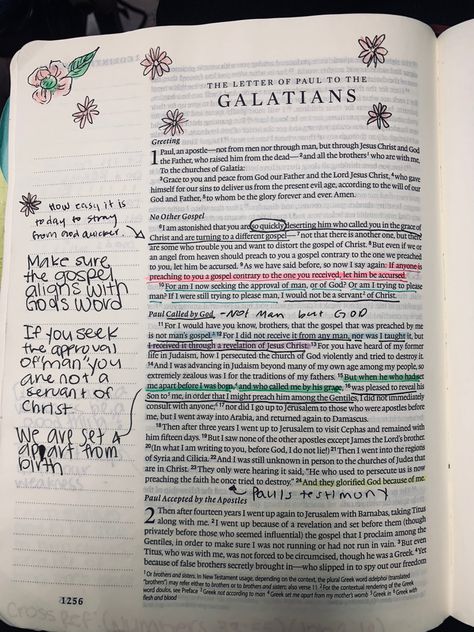 THE LETTER OF PAUL TO THE
GALATIANS
Greeting
1 Paul, an apostle—not from men nor through man, but through Jesus Christ and God
the Father, who raised him from the dead—2 and all the brothers1 who are with me,
To the churches of Galatia:
3 Grace to you and peace from God our Father and the Lord Jesus Christ, 4 who gave
himself for our sins to deliver us from the present evil age, according to the will of our
God and Father, 5 to whom be the glory forever and ever. Amen.
No Other Gospel
6 I am astonished that you are so quickly deserting him who called you in the grace of
Christ and are turning to a different gospel—7 not that there is another one, but there
are some who trouble you and want to distort the gospel of Christ. 8 But even if we or
an angel from heaven should preach to you a gospel contrary to the one we preached
to you, let him be accursed. 9 As we have said before, so now I say again: If anyone is
preaching to you a gospel contrary to the one you received, let him be accursed.
10 For am I now seeking the approval of man, or of God? Or am I trying to please
man? If I were still trying to please man, I would not be a servant2 of Christ.
Paul Called by God - Not man but GOD
11 For I would have you know, brothers, that the gospel that was preached by me
is not man's gospel.3 12 For I did not receive it from any man, nor was I taught it, but
I received it through a revelation of Jesus Christ. 13 For you have heard of my former
life in Judaism, how I persecuted the church of God violently and tried to destroy it.
14 And I was advancing in Judaism beyond many of my own age among my people, so
extremely zealous was I for the traditions of my fathers. 15 But when he who had set
me apart before I was born,4 and who called me by his grace, 16 was pleased to reveal his
Son to5 me, in order that I might preach him among the Gentiles, I did not immediately
consult with anyone;6 17 nor did I go up to Jerusalem to those who were apostles before
me, but I went away into Arabia, and returned again to Damascus.
18 Then after three years I went up to Jerusalem to visit Cephas and remained with
him fifteen days. 19 But I saw none of the other apostles except James the Lord's brother.
20 (In what I am writing to you, before God, I do not lie!) 21 Then I went into the regions
of Syria and Cilicia. 22 And I was still unknown in person to the churches of Judea that
are in Christ. 23 They only were hearing it said, "He who used to persecute us is now
preaching the faith he once tried to destroy." 24 And they glorified God because of me.
Paul's testimony
Paul Accepted by the Apostles
2 Then after fourteen years I went up again to Jerusalem with Barnabas, taking Titus
along with me. 2 I went up because of a revelation and set before them (though
privately before those who seemed influential) the gospel that I proclaim among the
Gentiles, in order to make sure I was not running or had not run in vain. 3 But even
Titus, who was with me, was not forced to be circumcised, though he was a Greek. 4 Yet
because of false brothers secretly brought in—who slipped in to spy out our freedom
1 Or brothers and sisters. In New Testament usage, depending on the context, the plural Greek word adelphoi (translated
"brothers") may refer either to brothers or to brothers and sisters; also verse 11 2 For the contextual rendering of the Greek
word doulos, see Preface 3 Greek not according to man 4 Greek set me apart from my mother's womb 5 Greek in 6 Greek with
flesh and blood
How easy it is
today to stray
from God quicker.
Make sure
the gospel
aligns with
God's word
If you seek
the approval
of man, you
are not a
servant of
Christ
We are set
apart from
birth
1256